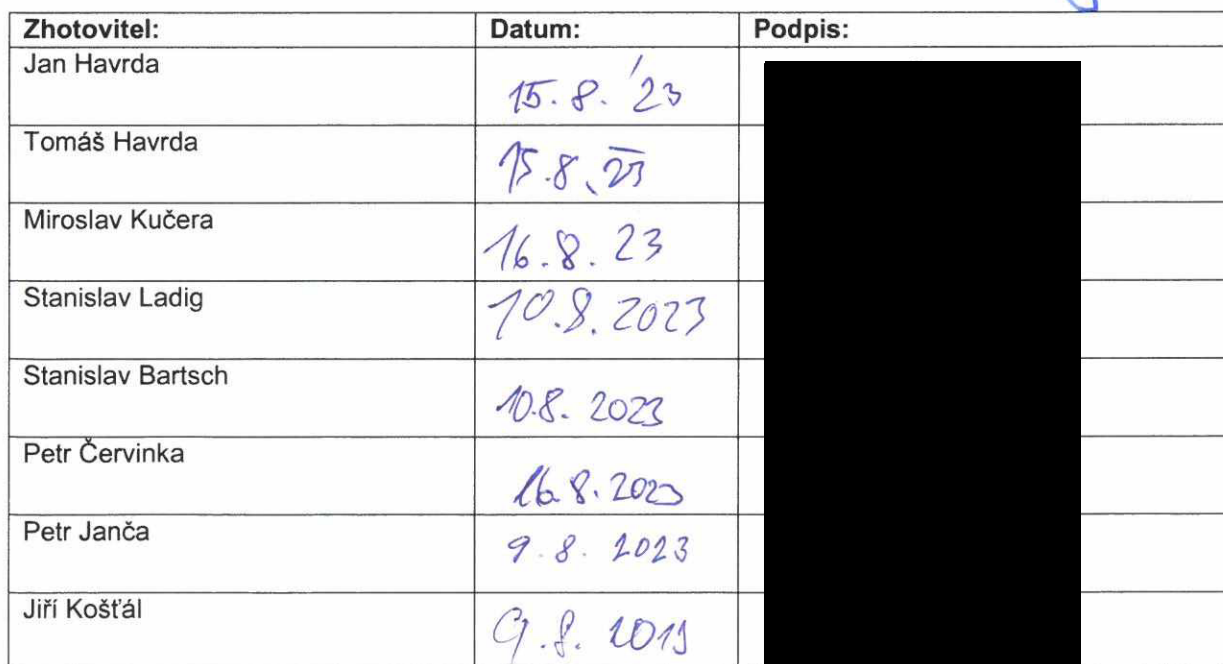 Zhotovitel: Datum: Podpis:
Jan Havrda 15. 8. '23
Tomáš Havrda 15.8.23
Miroslav Kučera 16.8. 23
Stanislav Ladig 10.8. 2023
Stanislav Bartsch 10.8. 2023
Petr Červinka 16.8. 2023
Petr Janča 9.8. 2023
Jiří Košťál 9.8.